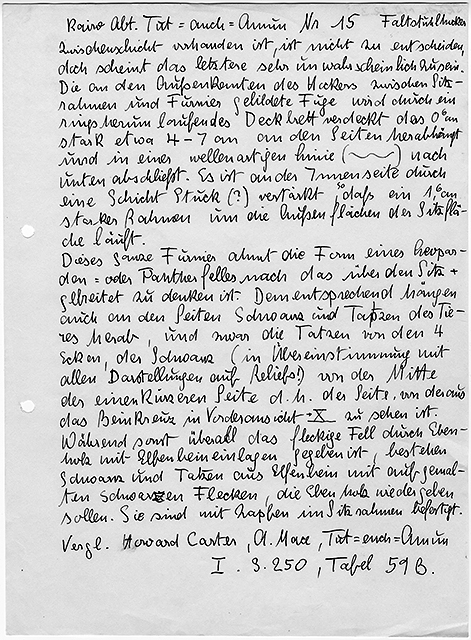 Kairo Abt. Tut=anch=Amun Nr 15 Faltstuhlhocker
Zwischenschicht vorhanden ist, ist nicht zu entscheiden,
doch scheint das letztere sehr unwahrscheinlich zu sein.
Die an den Außenkanten des Hockers zwischen Sitz-
rahmen und Furnier gebildete Fuge wird durch ein
ringsherum laufendes Deckbrett verdeckt das 0,6 cm
stark etwa 4-7 cm an den Seiten herabhängt
und in einer wellenartigen Linie (~~) nach
unten abschließt. Es ist an der Innenseite durch
eine Schicht Stuck (?) verstärkt, sodaß ein 1,6 cm
starker Rahmen um die Außenflächen der Sitzflä-
che läuft.
Dieses ganze Furnier ahmt die Form eines Leopar-
den= oder Pantherfelles nach das über den Sitz +
gebreitet zu denken ist. Dementsprechend hängen
auch an den Seiten Schwanz und Tatzen des Tie-
res herab, und zwar die Tatzen von den 4
Ecken, der Schwanz (in Übereinstimmung mit
allen Darstellungen auf Reliefs!) von der Mitte
der einen kürzeren Seite d.h. der Seite, von der aus
das Beinkreuz in Vorderansicht X zu sehen ist.
Während sonst überall das fleckige Fell durch Eben-
holz mit Elfenbeineinlagen gegeben ist, bestehen
Schwanz und Tatzen aus Elfenbein mit aufgemal-
ten schwarzen Flecken, die Ebenholz wiedergeben
sollen. Sie sind mit Zapfen im Sitzrahmen befestigt.
Vergl. Howard Carter, A. Mace, Tut=ench=Amun
I. S. 250, Tafel 59 B.